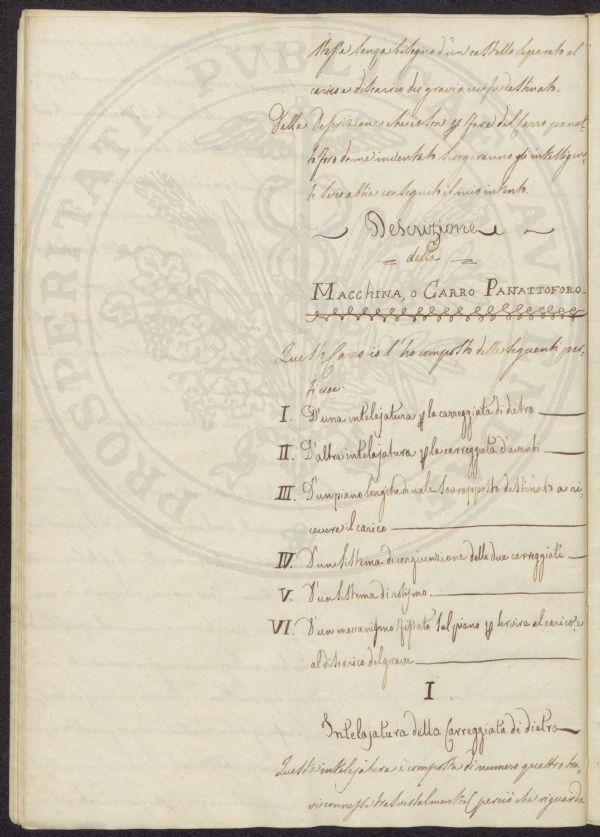 stessa senza bisogno d'un castello separato al
carico e discarico dei gravi a cui fu destinato.
Dalla descrizione che io son p fare del Carro panat-
toforo da me inventato scorgeranno gli intelligen-
ti se io abbia conseguito il mio intento.
Descrizione
della
MACCHINA, O CARRO PANATTOFORO
Quest Carro io l'ho composto delle seguenti par-
ti cioe:
I. D'una intelajatura p la carreggiata di dietro
II. D'altra intelajatura p la carreggiata d'avanti
III. D'un piano longitudinale sovrapposto destinato a ri-
cevere il carico
IV. D'un sistema di congiunzione delle due carreggiate
V. D'un sistema di
VI. D'un meccanismo fissato sul piano p servire al carico, e
al discarico del grave
I
Intelajatura della Carreggiata di dietro
Questa intelajatura è composta di numero quattro tra-
vi connesse trasversalmente (perciò che riguarda
PROSPERITATI PUBLICAE